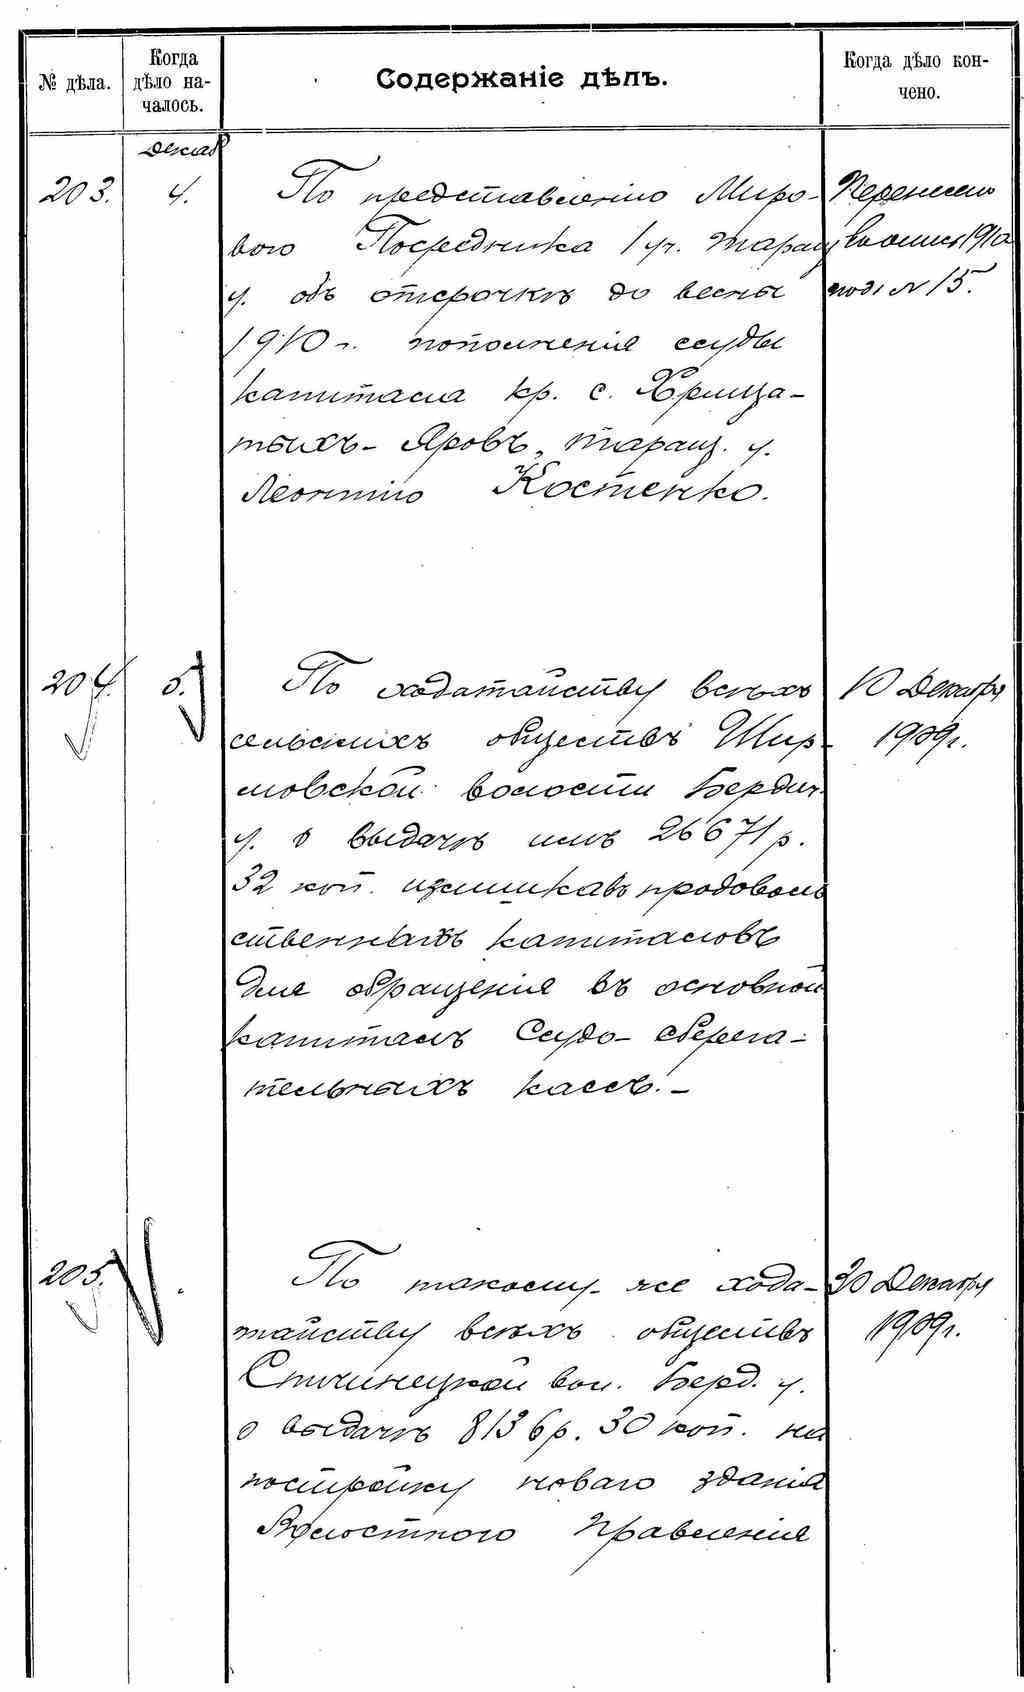 № дѣла.
Когда
дѣло на-
чалось.
Содержаніе дѣлъ.
Когда дѣло кон-
чено.
декаб
203.
4.
По представленію Миро-
вого Посредника 1 уч. таращ
у. объ отсрочкѣ до весны
1910 г. пополненія ссуды
капитала кр. с. Хрища-
тыхъ-Яровъ, таращ. у.
Леонтію Костенко.
Перенесено
въ опись 1910
подъ № 15.
204.
5.
По ходатайству всѣхъ
сельскихъ обществъ Шир-
мовской волости Бердич.
у. о выдачѣ имъ 26671 р.
32 коп. излишковъ продоволь
ственныхъ капиталовъ
для обращенія въ основной
капиталъ Ссудо-сберега-
тельныхъ кассъ.-
10 Декабря
1909г.
205.
По такому-же хода-
тайству всѣхъ обществъ
Спичинецкой вол. Берд. у.
о выдачѣ 8136 р. 30 коп. на
постройку новаго зданія
Волостного Правленія
30 Декабря
1909г.